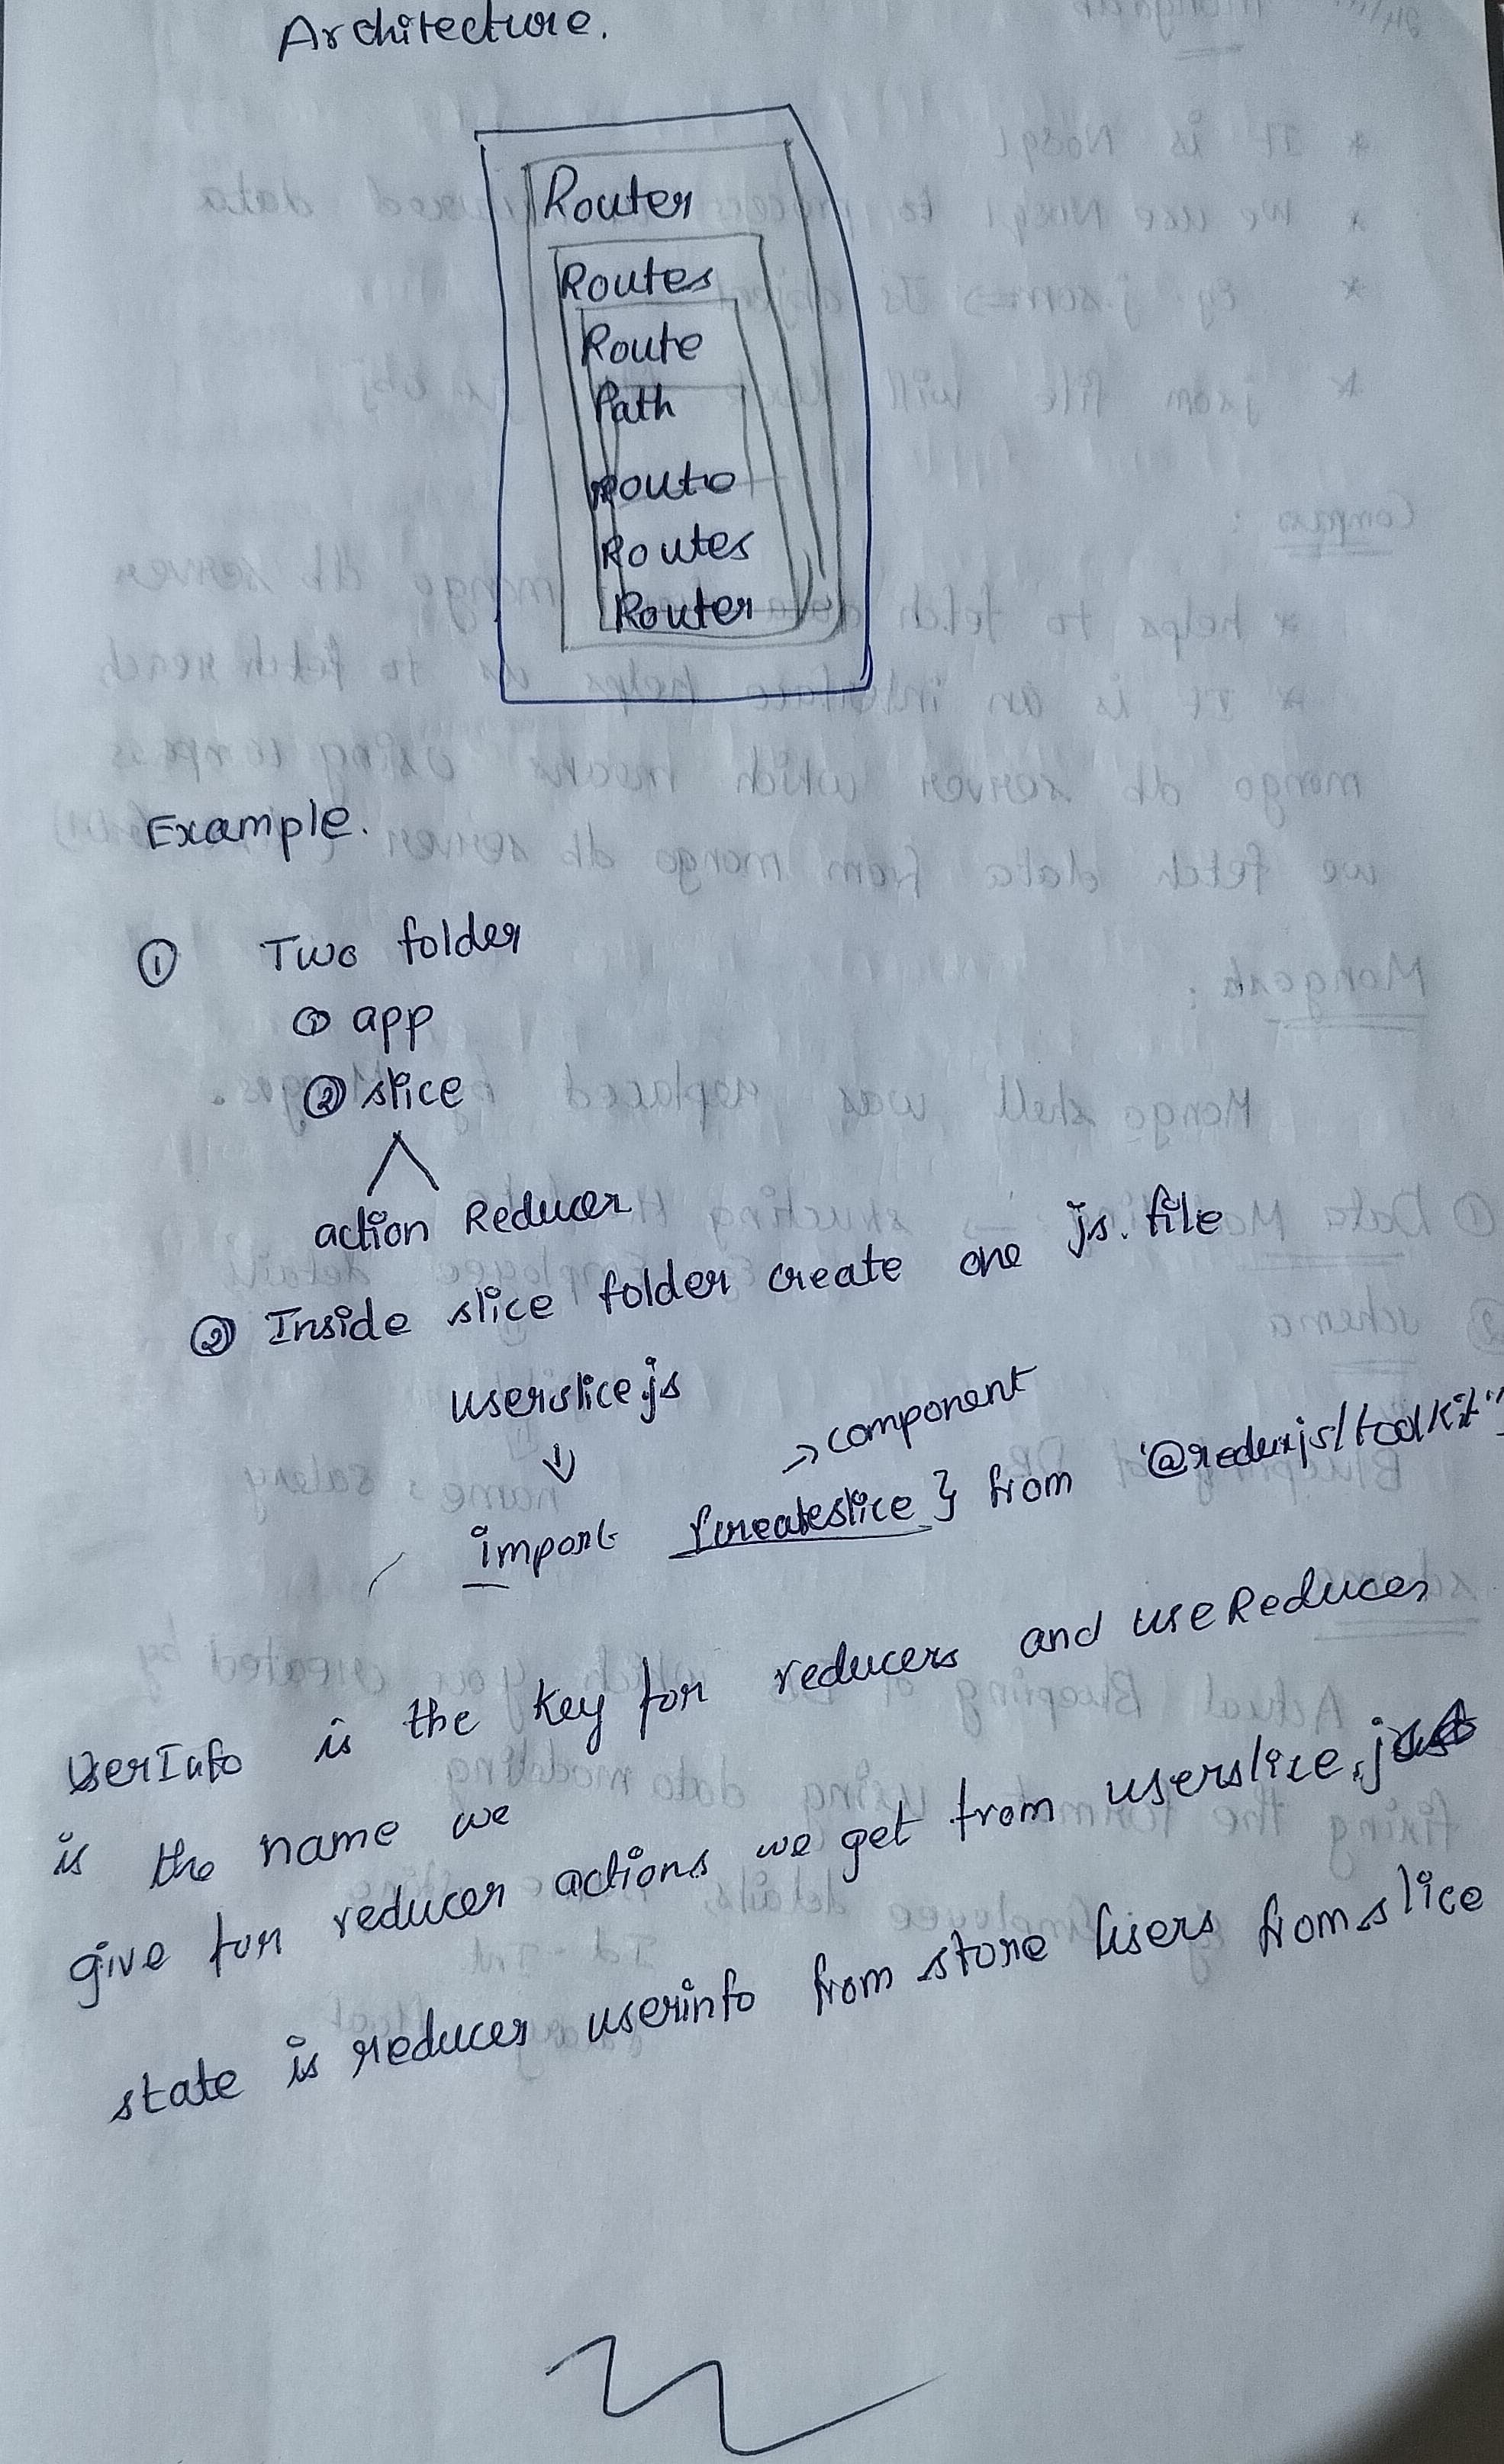 Architecture.
Router
Routes
Route
Path
Route
Routes
Router
Example.
① Two folder
① app
② slice
action Reducer
② Inside slice folder create one js. file
userslice.js
→ component
import {createslice} from '@reduxjs/toolkit"
UserInfo is the key for reducers and useReducer
is the name we
give for reducer actions we get from userslice.js
state is reducer userinfo from store Users from slice